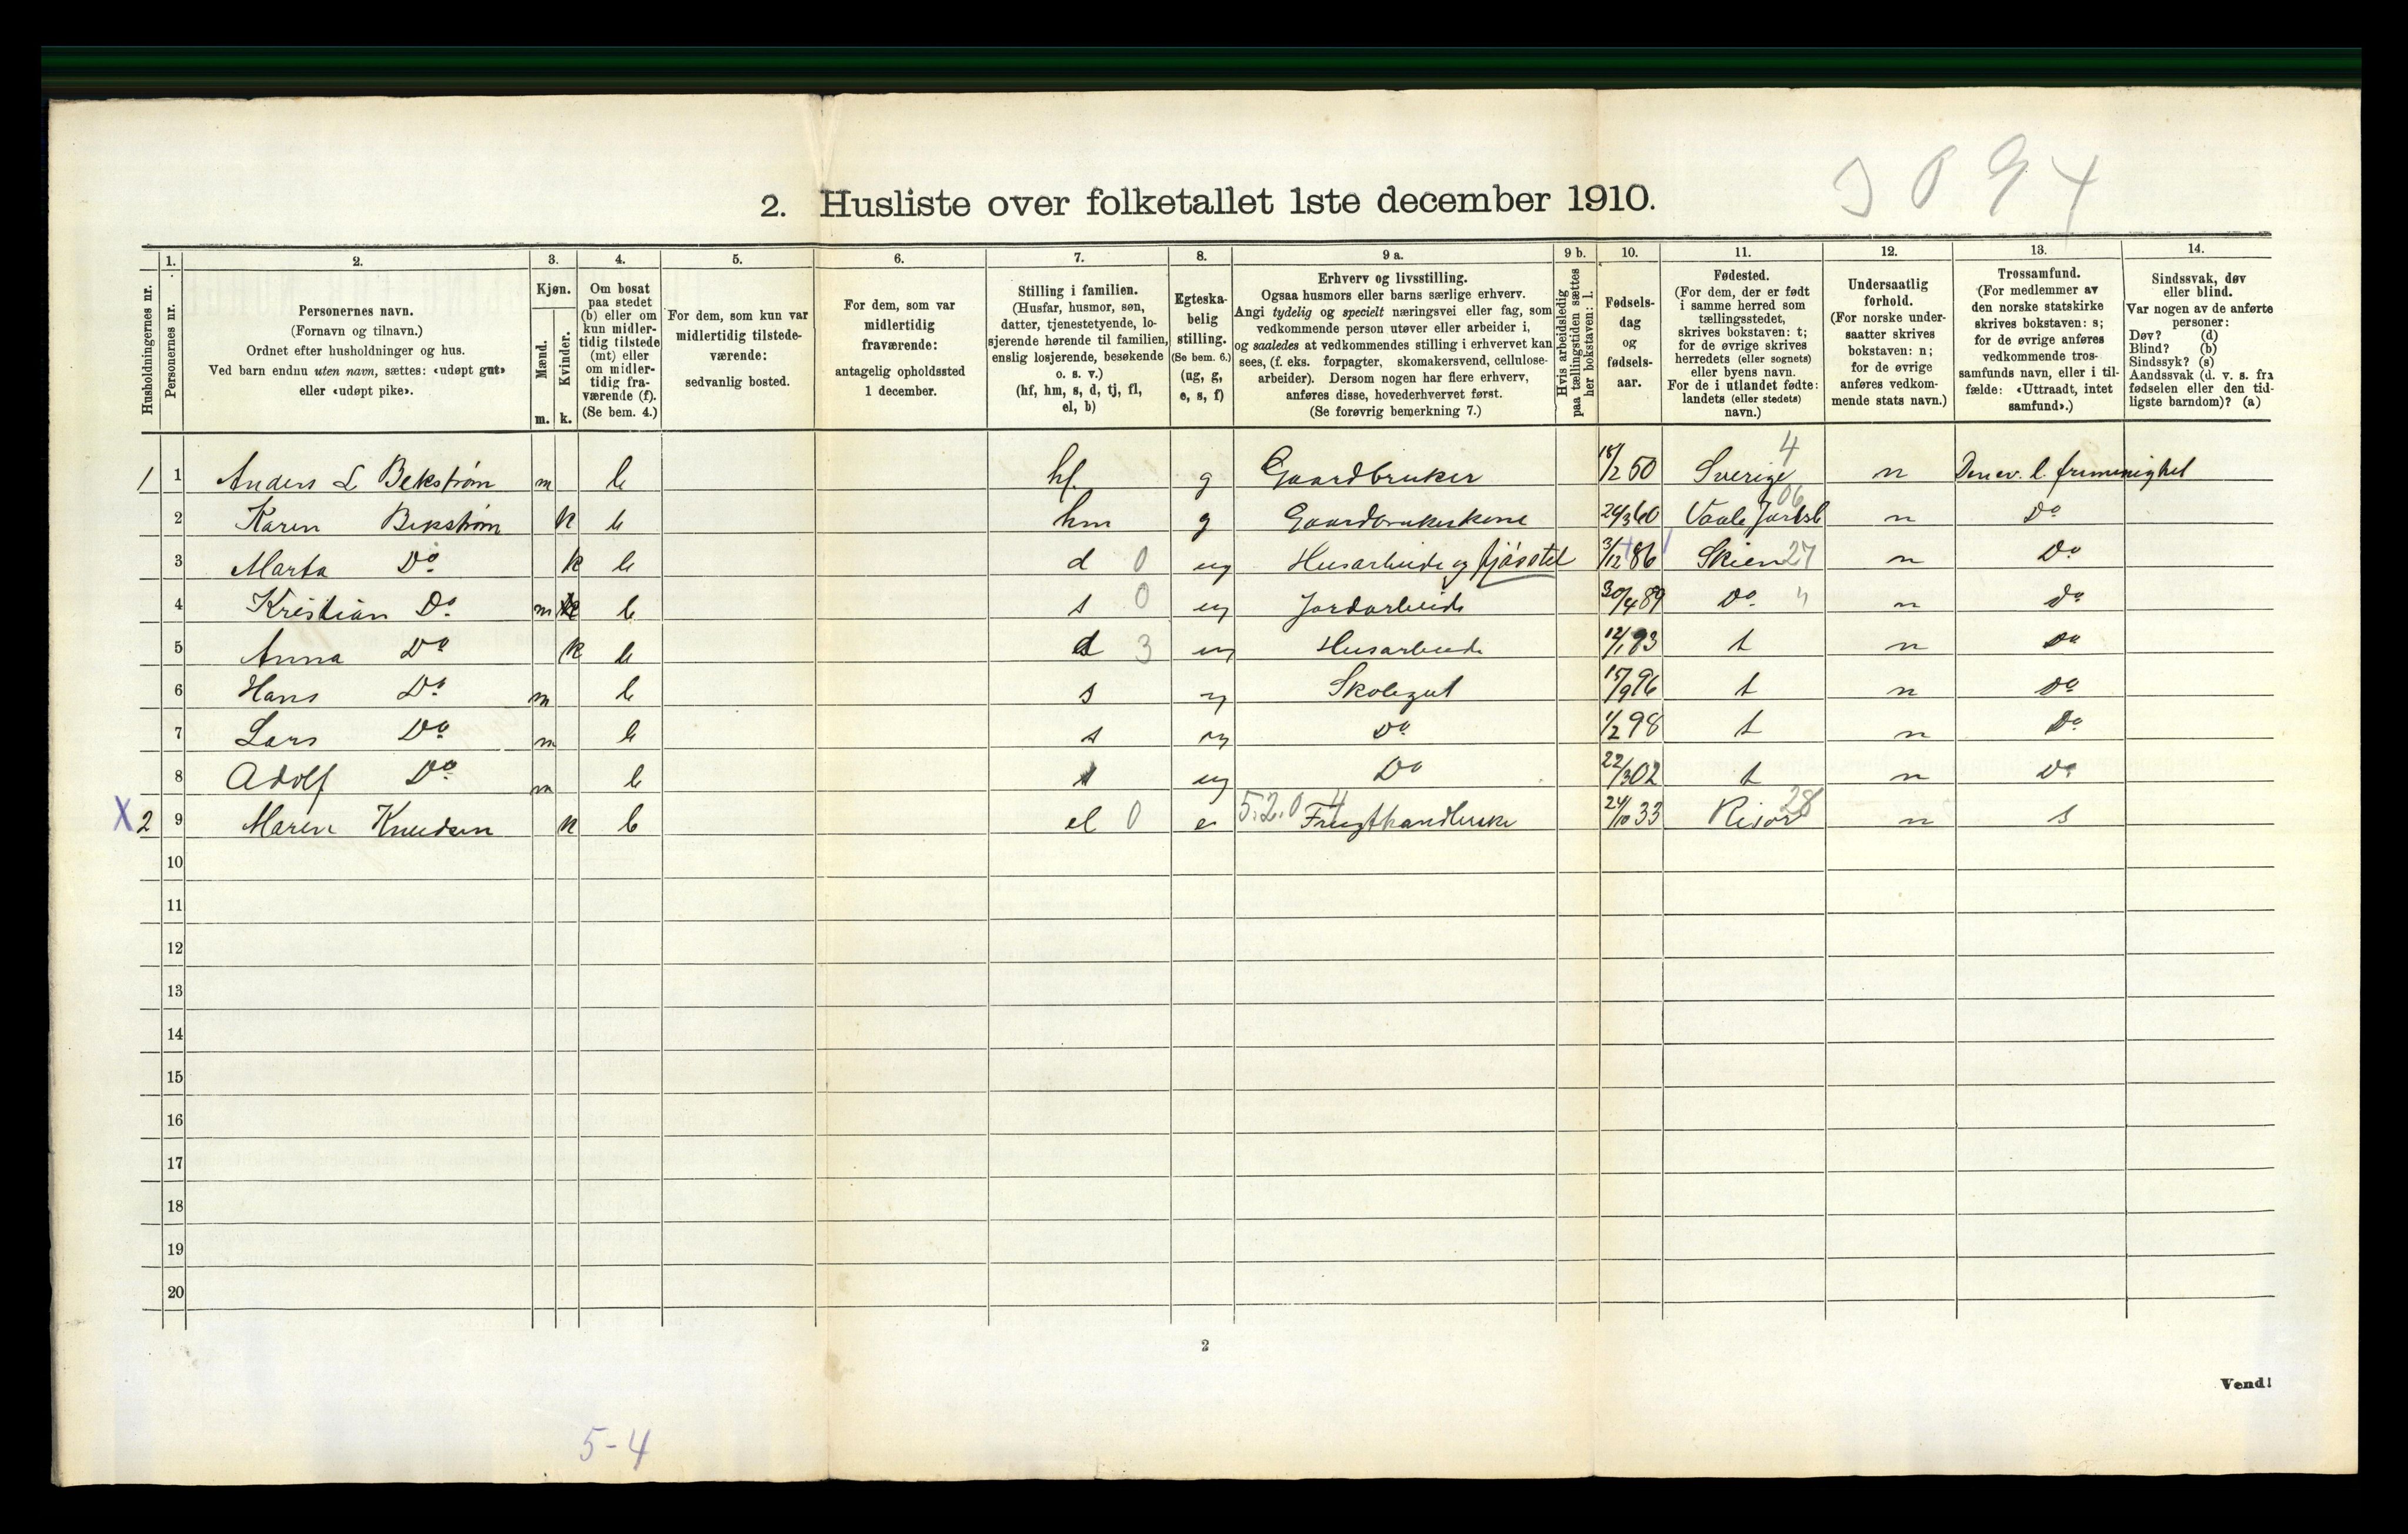 3094
2. Husliste over folketallet 1ste december 1910.
Husholdningernes nr.
1.
Personernes nr.
2.
Personernes navn.
(Fornavn og tilnavn.)
Ordnet efter husholdninger og hus.
Ved barn endnu uten navn, sættes: «udøpt gut»
eller «udøpt pike».
3.
Kjøn.
Mænd.
Kvinder.
m. k.
4.
Om bosat
paa stedet
(b) eller om
kun midler-
tidig tilstede
(mt) eller
om midler-
tidig fra-
værende (f).
(Se bem. 4.)
5.
For dem, som kun var
midlertidig tilstede-
værende:
sedvanlig bosted.
6.
For dem, som var
midlertidig
fraværende:
antagelig opholdssted
1 december.
7.
Stilling i familien.
(Husfar, husmor, søn,
datter, tjenestetyende, lo-
sjerende hørende til familien,
enslig losjerende, besøkende
o. s. v.)
(hf, hm, s, d, tj, fl,
el, b)
8.
Egteska-
belig
stilling.
(Se bem. 6.)
(ug, g,
e, s, f)
9 a.
Erhverv og livsstilling.
Ogsaa husmors eller barns særlige erhverv.
Angi tydelig og specielt næringsvei eller fag, som
vedkommende person utøver eller arbeider i,
og saaledes at vedkommendes stilling i erhvervet kan
sees, (f. eks. forpagter, skomakersvend, cellulose-
arbeider). Dersom nogen har flere erhverv,
anføres disse, hovederhvervet først.
(Se forøvrig bemerkning 7.)
9 b.
Hvis arbeidsledig
paa tællingstiden sættes
her bokstaven: l.
10.
Fødsels-
dag
og
fødsels-
aar.
11.
Fødested.
(For dem, der er født
i samme herred som
tællingsstedet,
skrives bokstaven: t;
for de øvrige skrives
herredets (eller sognets)
eller byens navn.
For de i utlandet fødte:
landets (eller stedets)
navn.)
12.
Undersaatlig
forhold.
(For norske under-
saatter skrives
bokstaven: n;
for de øvrige
anføres vedkom-
mende stats navn.)
13.
Trossamfund.
(For medlemmer av
den norske statskirke
skrives bokstaven: s;
for de øvrige anføres
vedkommende tros-
samfunds navn, eller i til-
fælde: «Uttraadt, intet
samfund».)
14.
Sindssvak, døv
eller blind.
Var nogen av de anførte
personer:
Døv? (d)
Blind? (b)
Sindssyk? (s)
Aandssvak (d. v. s. fra
fødselen eller den tid-
ligste barndom)? (a)
1 1 Anders L Bekstrøm m b hf g Gaardbruker 18/2 50 Sverige 4 n Den ev. l. frimenighet
2 Karen Bekstrøm k b hm g Gaardbrukerkone 24/3 60 Vaale Jarlsb 06 n Do
3 Marta Do k b d 0 ug Husarbeide og fjøsstel 3/12 86 Skien 27 n Do
4 Kristian Do m b s 0 ug Jordarbeide 30/4 89 Do " n do
5 Anna Do k b d 3 ug Husarbeide 12/1 93 t n Do
6 Hans Do m b s ug Skolegut 15/9 96 t n Do
7 Lars Do m b s ug Do 1/2 98 t n Do
8 Adolf Do m b s ug Do 22/3 02 t n Do
X 2 9 Maren Knudsen k b el 0 e 5.2.0 4 Frugthandlerske 24/10 33 Risør 28 n s
10
11
12
13
14
15
16
17
18
19
20
2
Vend!
5-4